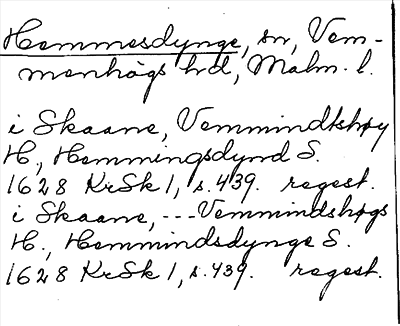 Hemmesdynge, sn, Vem-
menhögs hd, Malm. l.
i Skaane, Vemmindtshøy
H., Hemmingsdynd S.
1628 KrSk 1, s. 439. regest.
i Skaane, --- Vemmindshøgs
H., Hemmindsdynge S.
1628 KrSk 1, s. 439. regest.